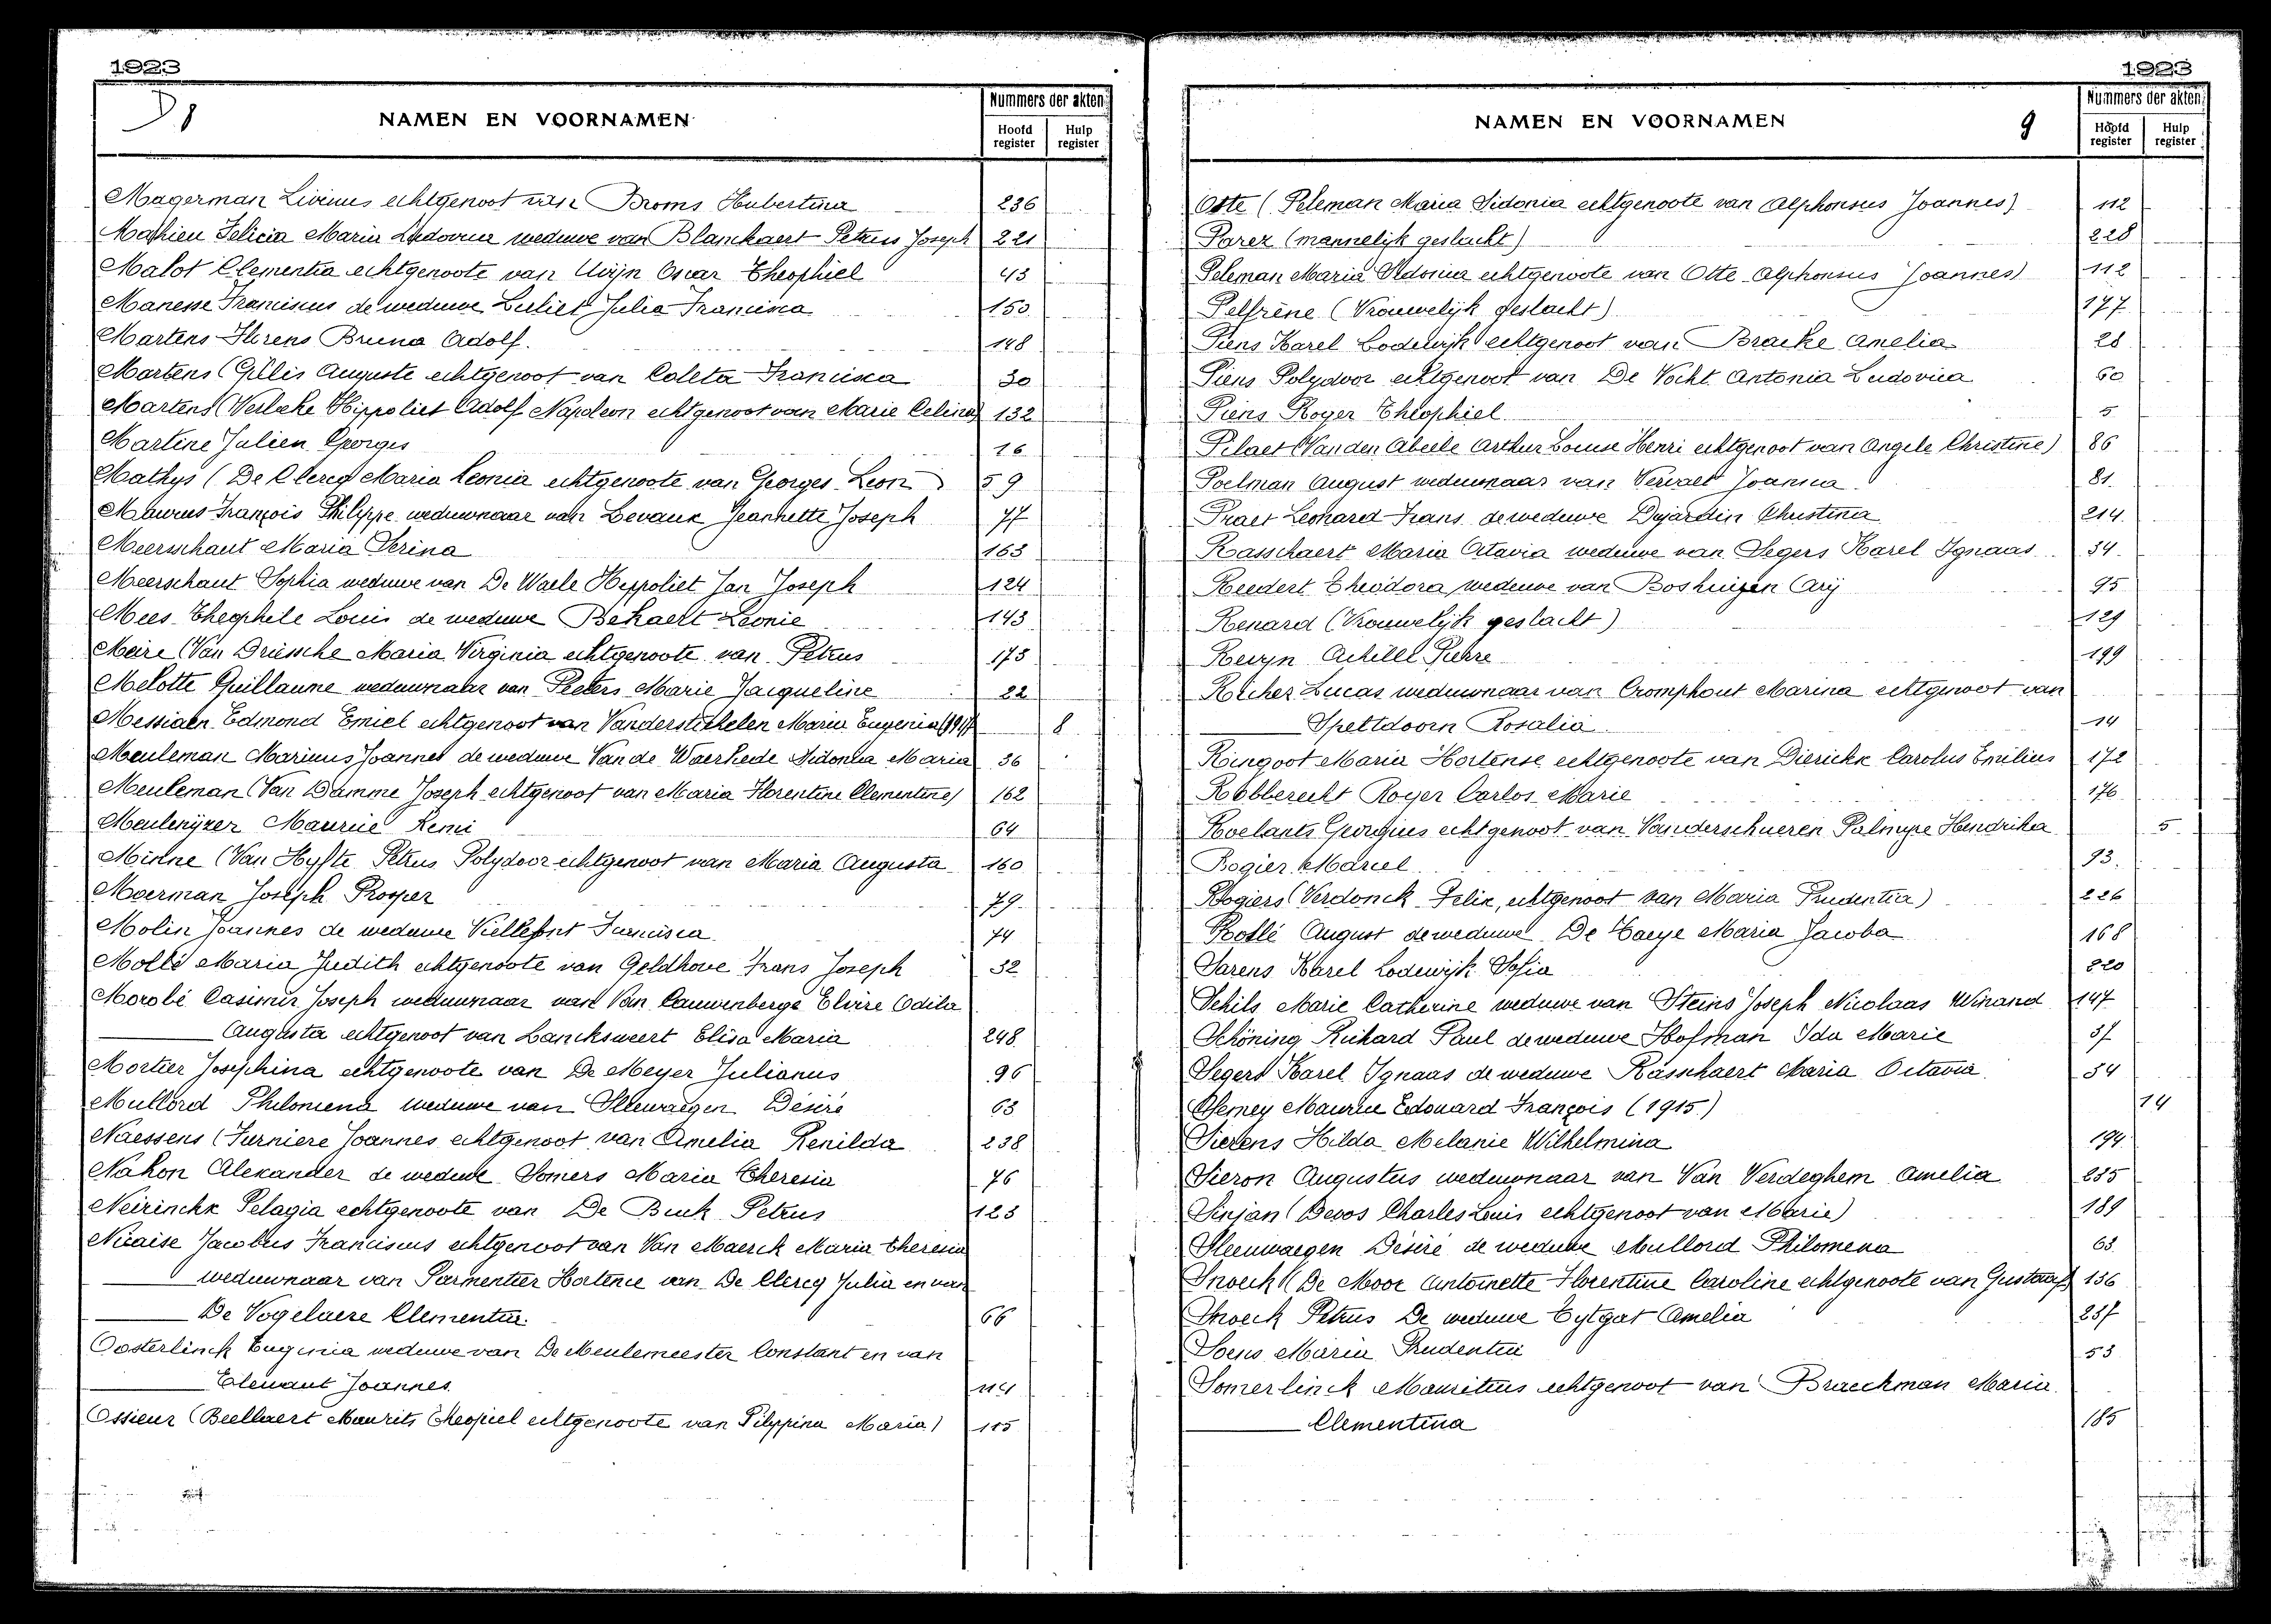 1923
NAMEN EN VOORNAMEN
Nummers der akten
Hoofd register
Hulp register
Magerman Livinus echtgenoot van Broms Hubertina 236
Mathieu Felicia Maria Ludovica weduwe van Blanckaert Petrus Joseph 221
Malot Clementia echtgenoote van Uvijn Oscar Theophiel 43
Manesse Franciscus de weduwe Luliet Julia Francisca 150
Martens Florens Bruno Adolf. 148
Martens (Gillis Auguste echtgenoot van Coleta Francisca 30
Martens (Verbeke Hippoliet Adolf Napoleon echtgenoot van Marie Celina) 132
Martine Julien Georges 16
Mathys (De Clercq Maria Leonia echtgenoote van Georges Leon) 59
Maurus François Philippe weduwnaar van Levaux Jeannette Joseph 77
Meerschaut Maria Serina 163
Meerschaut Sophia weduwe van De Waele Hyppoliet Jan Joseph 124
Mees Theophile Louis de weduwe Bekaert Leonie 143
Meire (Van Driessche Maria Virginia echtgenoote van Petrus 175
Melotte Guillaume weduwnaar van Peeters Marie Jacqueline 22
Messiaen Edmond Emiel echtgenoot van Vanderstichelen Maria Eugenia 8
Meuleman Marinus Joannes de weduwe Van de Waerhede Sidonia Maria 36
Meuleman (Van Damme Joseph echtgenoot van Maria Florentine Clementine) 162
Meulenijzer Maurice Remi 64
Minne (Van Hyfte Petrus Polydoor echtgenoot van Maria Augusta 160
Moerman Joseph Prosper 79
Molin Joannes de weduwe Viellefont Francisca 74
Mollé Maria Judith echtgenoote van Geldhove Frans Joseph 32
Morobé Casimir Joseph weduwnaar van Van Cauwenberge Elvire Odila
Augusta echtgenoot van Lancksweert Elisa Maria 248
Mortier Josephina echtgenoote van De Meyer Julianus 96
Mullord Philomena weduwe van Sleewaegen Désiré 63
Naessens (Furniere Joannes echtgenoot van Amelia Renilda 238
Nahon Alexander de weduwe Somers Maria Theresia 76
Neirinckx Pelagia echtgenoote van De Buck Petrus 123
Nicaise Jacobus Franciscus echtgenoot van Van Maerck Maria Theresia
weduwnaar van Parmentier Hortence van De Clercq Julia en van
De Vogelaere Clementia. 66
Oosterlinck Eugenia weduwe van De Meulemeester Constant en van
Elewaut Joannes 114
Ossieur (Beellaert Maurits Theopiel echtgenoote van Filippina Maria) 115
1923
NAMEN EN VOORNAMEN
9
Nummers der akten
Hoofd register
Hulp register
Otte (Peleman Maria Sidonia echtgenoote van Alphonsus Joannes) 112
Parez (mannelijk geslacht) 228
Peleman Maria Sidonia echtgenoote van Otte Alphonsus Joannes) 112
Pelfrène (Vrouwelijk geslacht) 177
Piens Karel Lodewijk echtgenoot van Bracke Amelia 28
Piens Polydoor echtgenoot van De Vocht Antonia Ludovica 60
Piens Roger Theophiel 5
Pilaet (Van den Abeele Arthur Louise Henri echtgenoot van Angele Christine) 86
Poelman August weduwnaar van Vervaet Joanna. 81
Praet Leonard Frans de weduwe Dujardin Christina 214
Rasschaert Maria Octavia weduwe van Segers Karel Ignaas 34
Reedert Theodora weduwe van Boshuizen Arij 95
Renard (Vrouwelijk geslacht) 129
Rewyn Achille Pierre 199
Richer Lucas weduwnaar van Cromphout Marina echtgenoot van
Speltdoorn Rosalia 14
Ringoot Maria Hortense echtgenoote van Dierickx Carolus Emilius 172
Robberecht Roger Carlos Marie 176
Roelants Georgius echtgenoot van Vanderschueren Palmyre Hendrika 5
Rogier Marcel 93
Rogiers (Verdonck Felix, echtgenoot van Maria Prudentia) 226
Rollé August de weduwe De Haeye Maria Jacoba 168
Sarens Karel Lodewijk Sofia 220
Schils Marie Catherine weduwe van Steins Joseph Nicolaas Winand 147
Schöning Richard Paul de weduwe Hofman Ida Marie 37
Segers Karel Ignaas de weduwe Rasschaert Maria Octavia 34
Semey Maurice Edouard François (1915) 14
Sierens Hilda Melanie Wilhelmina 194
Sieron Augustus weduwnaar van Van Verdeghem Amelia 235
Sinjan (Devos Charles Louis echtgenoot van Marie) 189
Sleeuwaegen Désiré de weduwe Mullord Philomena 63
Snoeck (De Moor Antoinette Florentine Caroline echtgenoote van Gustaaf) 136
Snoeck Petrus De weduwe Cytgat Amelia 237
Soens Maria Prudentia 53
Somerlinck Mauritius echtgenoot van Braeckman Maria
Clementina 185